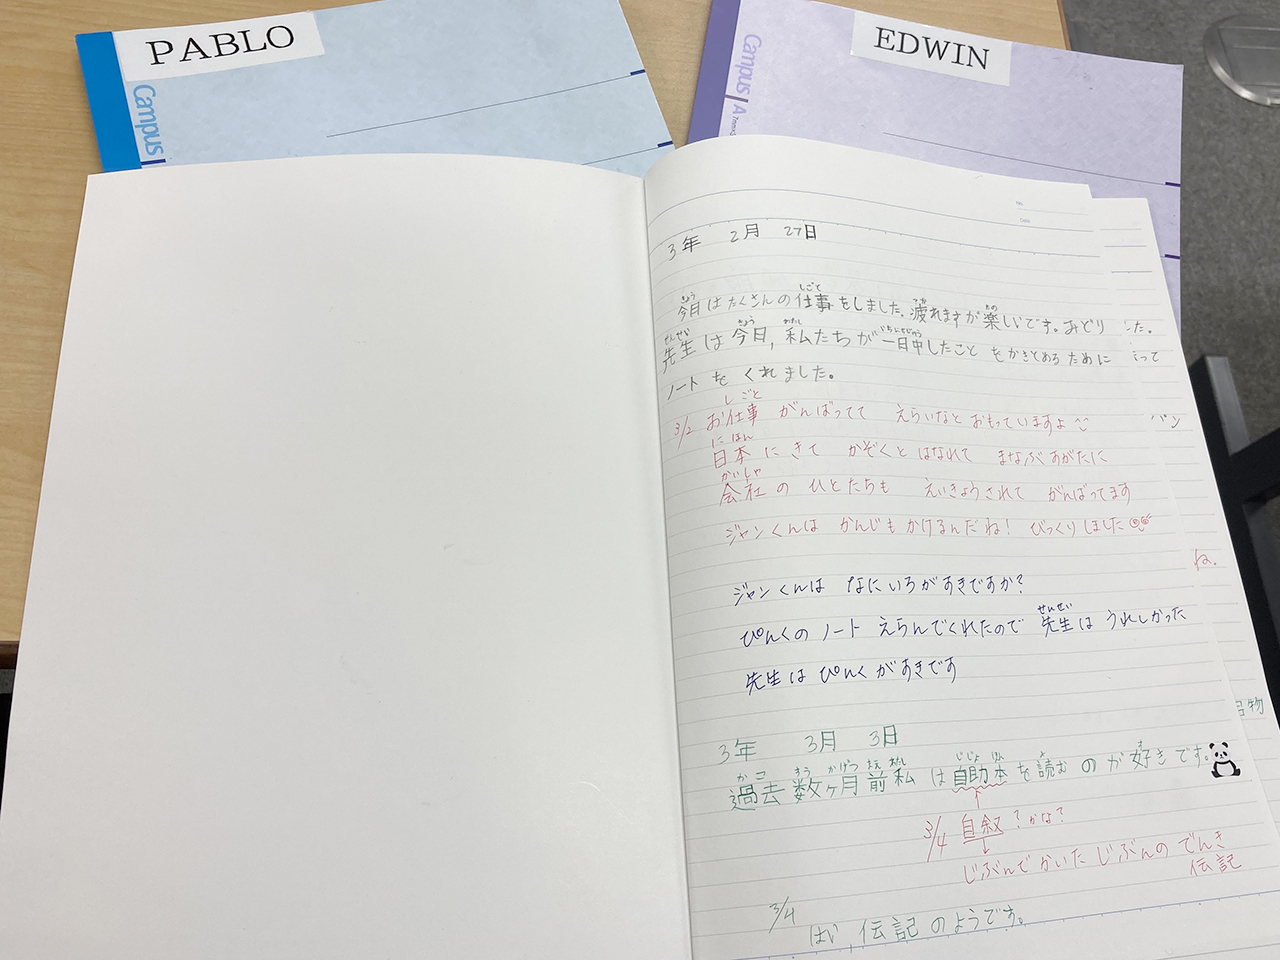 PABLO
Campus
EDWIN
Campus A
3年 2月 27日
きょう しごと つか たの
今日はたくさんの仕事をしました。疲れますが楽しいです。みどり
せんせい きょう わたし いちにちじゅう
先生は今日、私たちが一日中したことをかきとめるために
ノートをくれました。
しごと
3/2 お仕事 がんばってて えらいなと おもっていますよ
にほん
日本にきて かぞくと はなれて まなぶすがたに
かいしゃ
会社の ひとたちも えいきょうされて がんばってます
ジャンくんは かんじもかけるんだね! びっくりしました
ジャンくんは なにいろがすきですか?
せんせい
ぴんくの ノート えらんでくれたので 先生は うれしかった
先生は ぴんくがすきです
3年 3月 3日
かこ すう かげつ まえ わたし じじょ ほん よ す
過去数ヶ月前私は自助本を読むのが好きです。
3/4 自叙?かな?
じぶんでかいた じぶんの でんき
伝記
3/4
はい、伝記のようです。
た。
って
パン
ね。
物